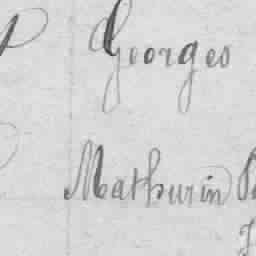 Georges
Mathurin